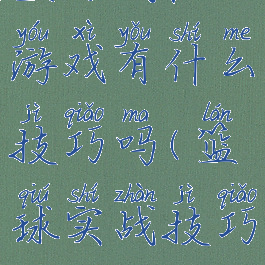 yóu xì yǒu shí me
游戏有什么
jì qiǎo ma lán
技巧吗(篮
qiú shí zhàn jì qiǎo
球实战技巧